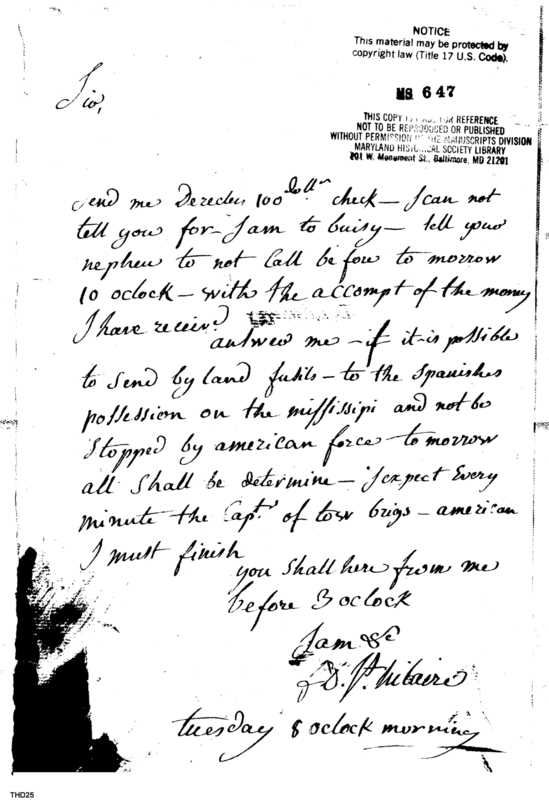 NOTICE
This material may be protected by
copyright law (Title 17 U.S. Code).
MS 647
THIS COPY IS FOR REFERENCE
NOT TO BE REPRODUCED OR PUBLISHED
WITHOUT PERMISSION OF THE MANUSCRIPTS DIVISION
MARYLAND HISTORICAL SOCIETY LIBRARY
201 W. Monument St., Baltimore, MD 21201
Sir,
send me 100 doll.rs check – I can not
tell you for – I am to buisy – tell your
nepheu to not Call be fore to morrow
10 oclock – with the accompt of the money
I have receiv.d
answer me – if it is possible
to send by land fusils – to the spanishes
possession on the missisipi and not be
stopped by american force – to morrow
all shall be determine – I expect Every
minute the Capt.s of tow brigs – american
I must finish
you shall here from me
before 3 oclock
I am &c
D. St. hilaire
tuesday 8 oclock morning
THD25